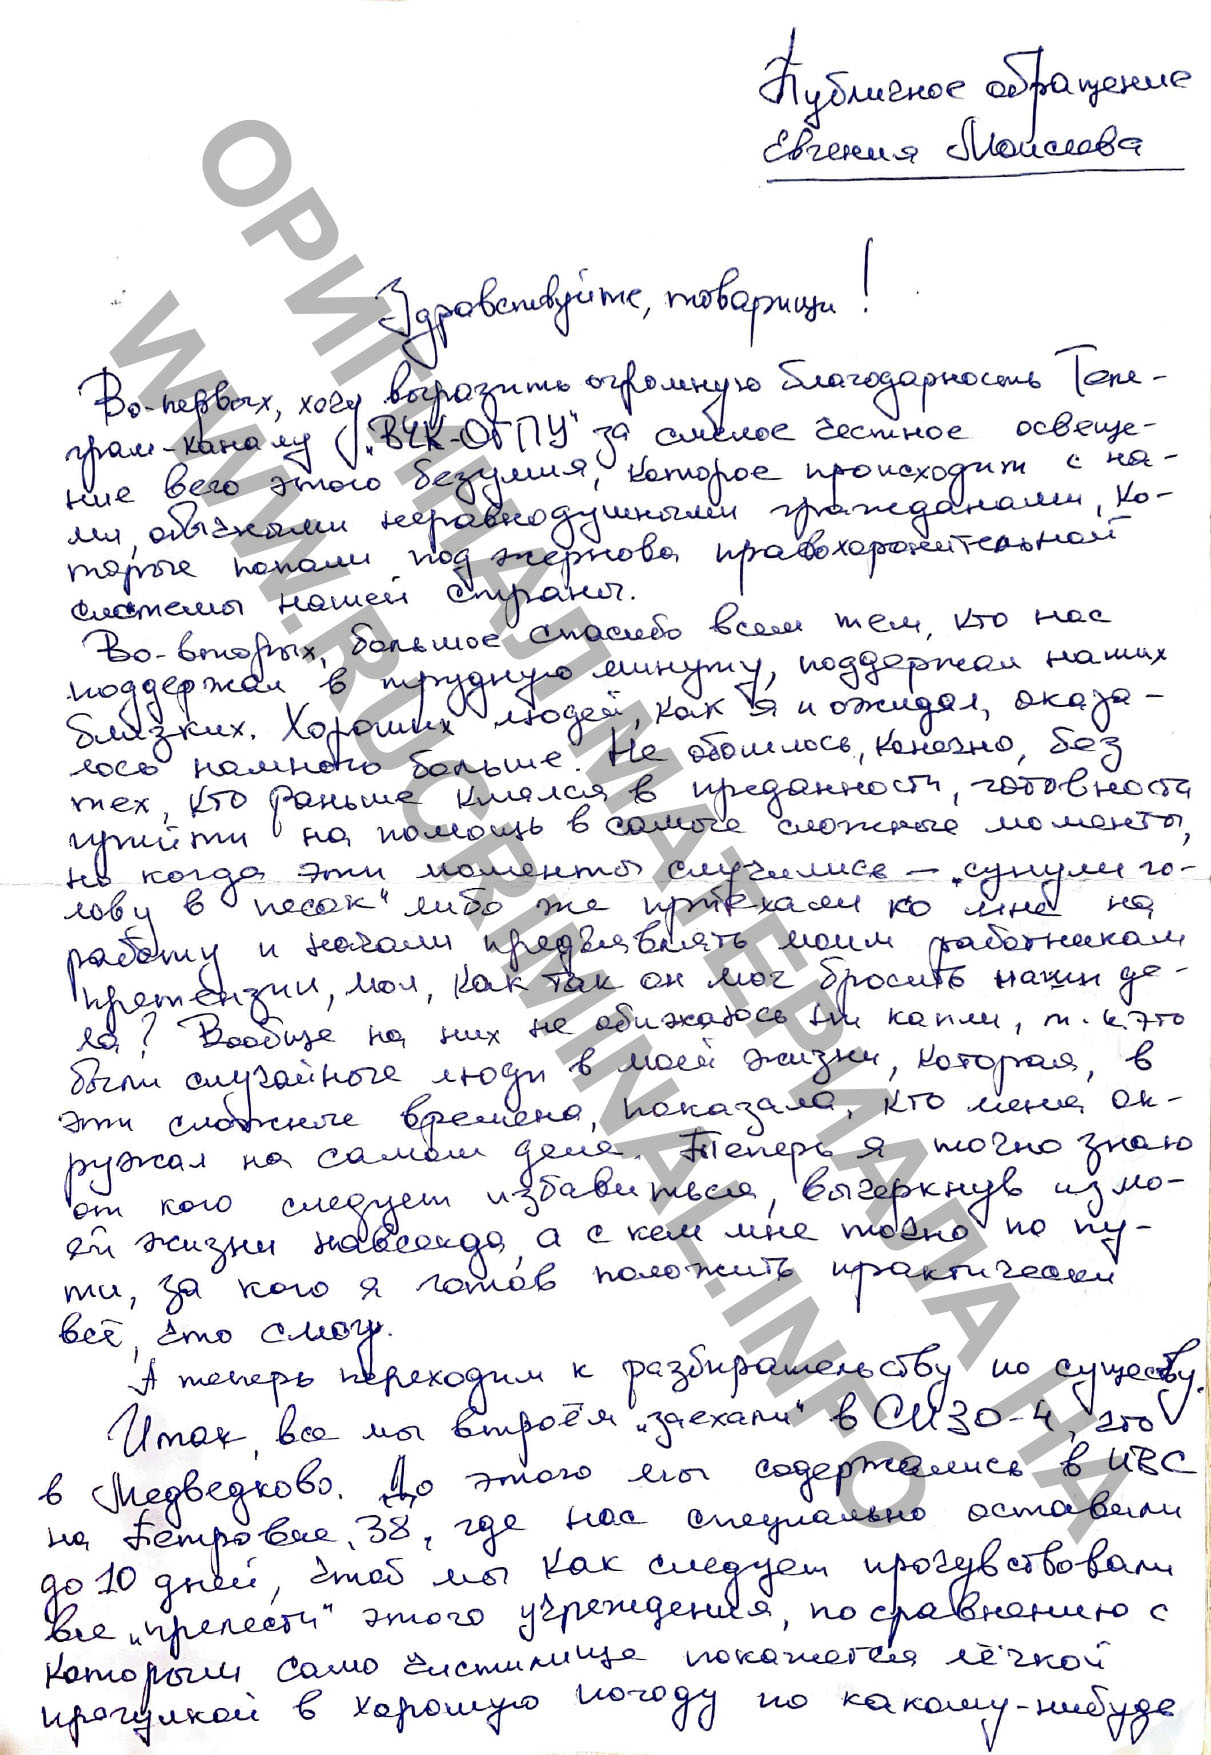 Публичное обращение
Евгения Моисеева
Здравствуйте, товарищи!
Во-первых, хочу выразить огромную благодарность Теле-
грам-каналу „ВЧК-ОГПУ" за смелое честное освеще-
ние всего этого безумия, которое происходит с на-
ми, обычными неравнодушными гражданами, ко-
торые попали под жернова правохоронительной
системы нашей страны.
Во-вторых, большое спасибо всем тем, кто нас
поддержал в трудную минуту, поддержал наших
близких. Хороших людей, как я и ожидал, оказа-
лось намного больше. Не обошлось, конечно, без
тех, кто раньше клялся в преданности, готовности
прийти на помощь в самые сложные моменты,
но когда эти моменты случились – „сунули го-
лову в песок" либо же приехали ко мне на
работу и начали предъявлять моим работникам
претензии, мол, как так он мог бросить наши де-
ла? Вообще на них не обижаюсь ни капли, т.к. это
были случайные люди в моей жизни, которая, в
эти сложные времена, показала, кто меня ок-
ружал на самом деле. Теперь я точно знаю
от кого следует избавиться, вычеркнув из мо-
ей жизни навсегда, а с кем мне точно по пу-
ти, за кого я готов положить практически
всё, что смогу.
А теперь переходим к разбирательству по существу.
Итак, все мы втроём „заехали" в СИЗО-4, что
в Медведково. До этого мы содержались в ИВС
на Петровке, 38, где нас специально оставили
до 10 дней, чтоб мы как следует прочувствовали
все „прелести" этого учреждения, по сравнению с
которым само чистилище покажется лёгкой
прогулкой в хорошую погоду по какому-нибудь
ОРИГИНАЛ МАТЕРИАЛА НА
WWW.RUCRIMINAL.INFO